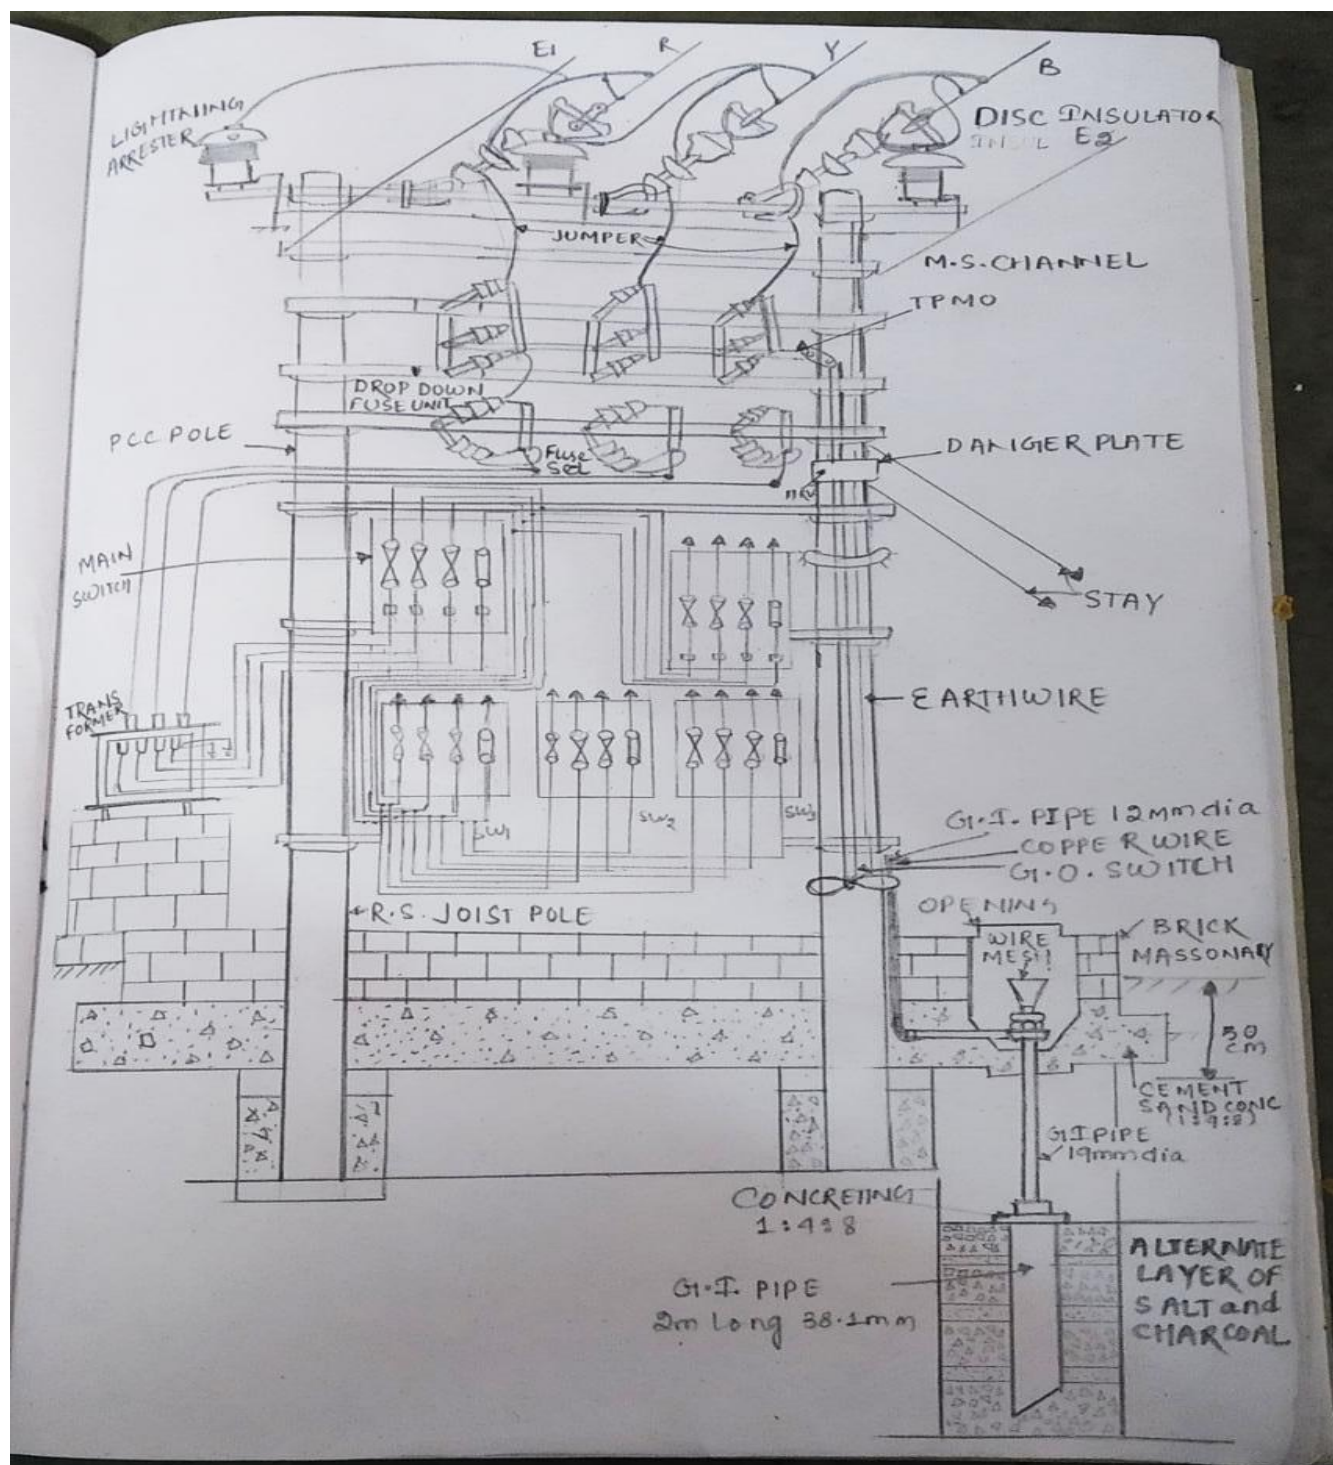 E1
R
Y
B
LIGHTNING
ARRESTER
DISC INSULATOR
INSUL E2
JUMPER
M.S.CHANNEL
TPMO
DROP DOWN
FUSE UNIT
PCC POLE
DANGER PLATE
Fuse
MAIN
SWITCH
STAY
TRANS
FORMER
EARTHWIRE
SW1
SW2
SW3
G.I. PIPE 12mm dia
COPPER WIRE
G.O. SWITCH
R.S. JOIST POLE
OPENING
WIRE
MESH
BRICK
MASSONARY
50
cm
CEMENT
SAND CONC
(1:4:8)
G I PIPE
19mm dia
CONCRETING
1:4:8
G.I. PIPE
2m long 38.1mm
ALTERNATE
LAYER OF
SALT and
CHARCOAL